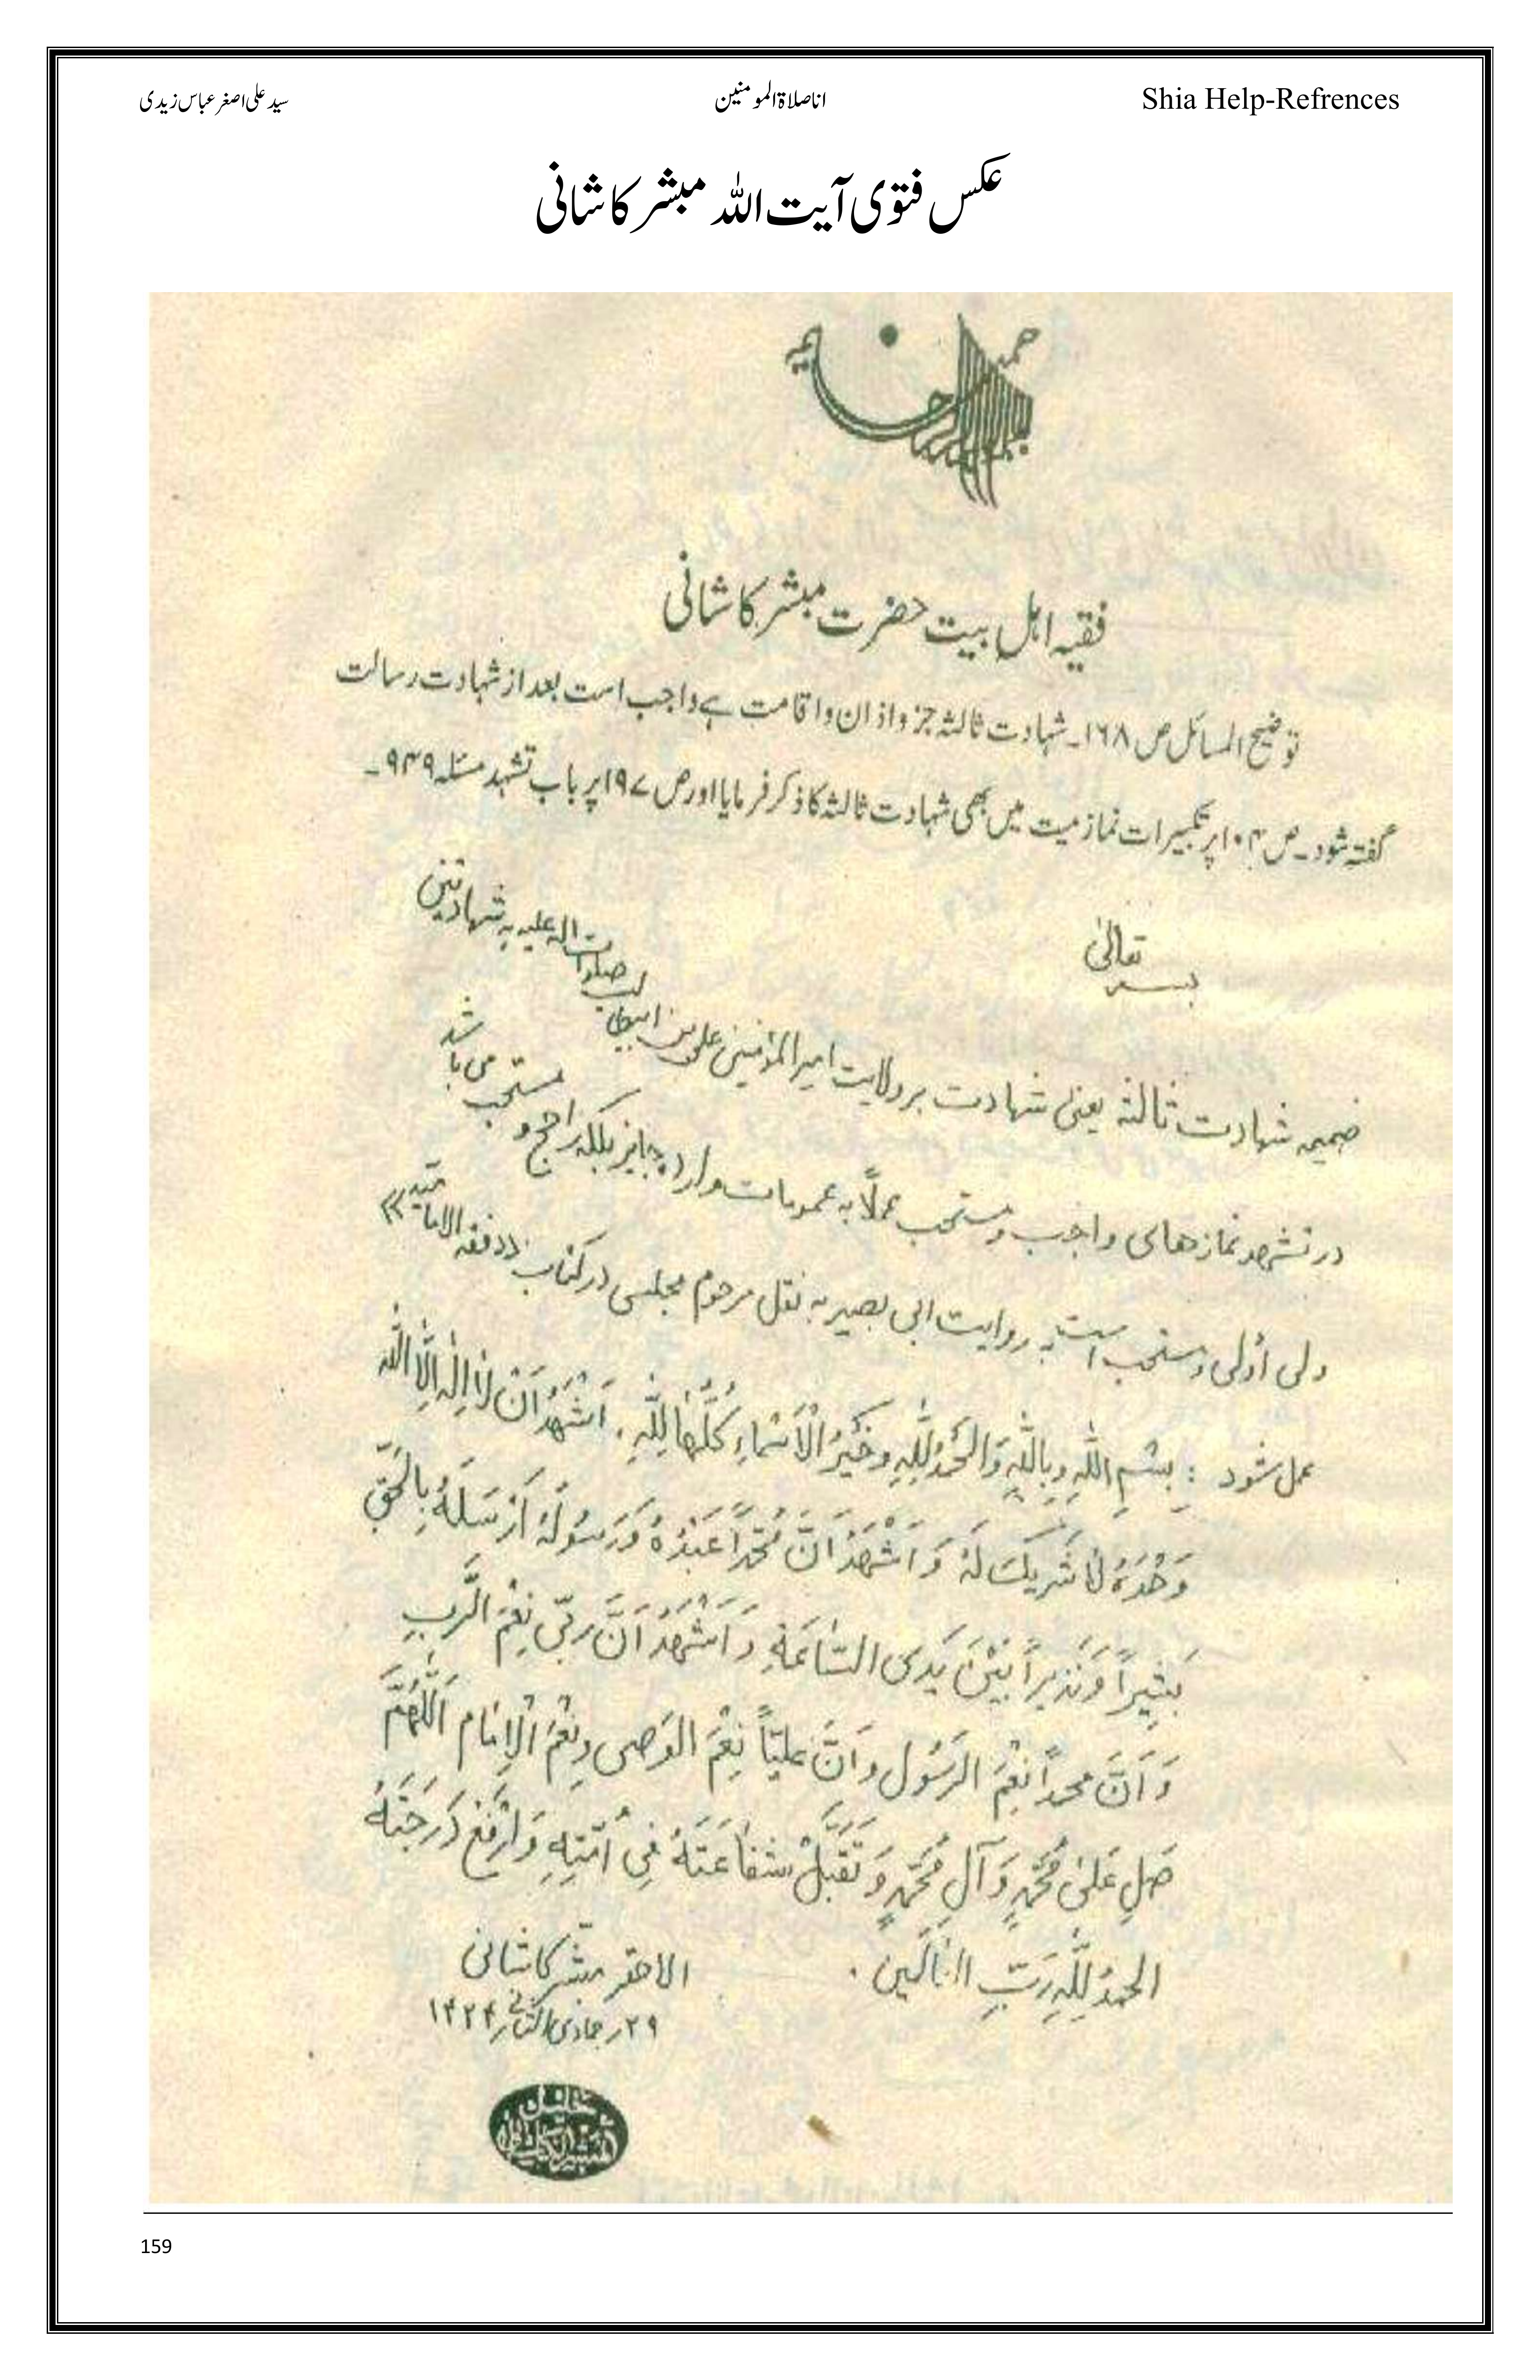 Shia Help-Refrences
اناصلاۃالمومنین
سید علی اصغر عباس زیدی
عکس فتوی آیت اللہ مبشر کاشانی
فقیہ اہل بیت حضرت مبشر کاشانی
توضیح المسائل ص ۱۶۸۔ شہادت ثالثہ جزو اذان و اقامت ہے واجب است بعد از شہادت رسالت
گفتہ شود۔ ص ۱۰۴ پر تکبیرات نماز میت میں بھی شہادت ثالثہ کا ذکر فرمایا اور ص ۱۹۷ پر باب تشہد مسئلہ ۹۴۹۔
بسمه تعالیٰ
ضمیمه شهادت ثالثه یعنی شهادت بر ولایت امیرالمؤمنین علی بن ابیطالب صلوات اله علیه به شهادتین
در تشهد نمازهای واجب و مستحب عملاً به عمومات وارده جایز بلکه راجح و مستحب می باشد
ولی أولی و مستحب است به روایت ابی بصیر به نقل مرحوم مجلسی در کتاب «فقه الامامیّه»
عمل شود : بِسْمِ اللّٰهِ وَبِاللّٰهِ وَالْحَمْدُ لِلّٰهِ وَخَیْرُ الْأَسْمَاءِ كُلُّهَا لِلّٰهِ . اَشْهَدُ اَنْ لَا اِلٰهَ اِلَّا اللّٰه
وَحْدَهُ لَا شَرِیكَ لَهُ وَ اَشْهَدُ اَنَّ مُحَمَّداً عَبْدُهُ وَ رَسُولُهُ اَرْسَلَهُ بِالْحَقِّ
بَشِیراً وَ نَذِیراً بَیْنَ یَدَیِ السَّاعَةِ وَ اَشْهَدُ اَنَّ رَبِّی نِعْمَ الرَّبِ
وَ اَنَّ محمداً نِعْمَ الرَسُول و اَنَّ عَلیّاً نِعْمَ الوَصی وَ نِعْمَ الْاِمَام اَللّٰهُمَّ
صَلِ عَلیٰ مُحَمَّدٍ وَ آلِ مُحَمَّدٍ وَ تَقَبَّلْ شَفَاعَتَهُ فِی اُمَّتِهِ وَ ارْفَعْ دَرَجَتَهُ
الحمدُ لِلّٰهِ رَبِّ العَالَمِین .
الاحقر مبشّر کاشانی
۲۹ر جمادی الثانی ر ۱۴۲۴
159